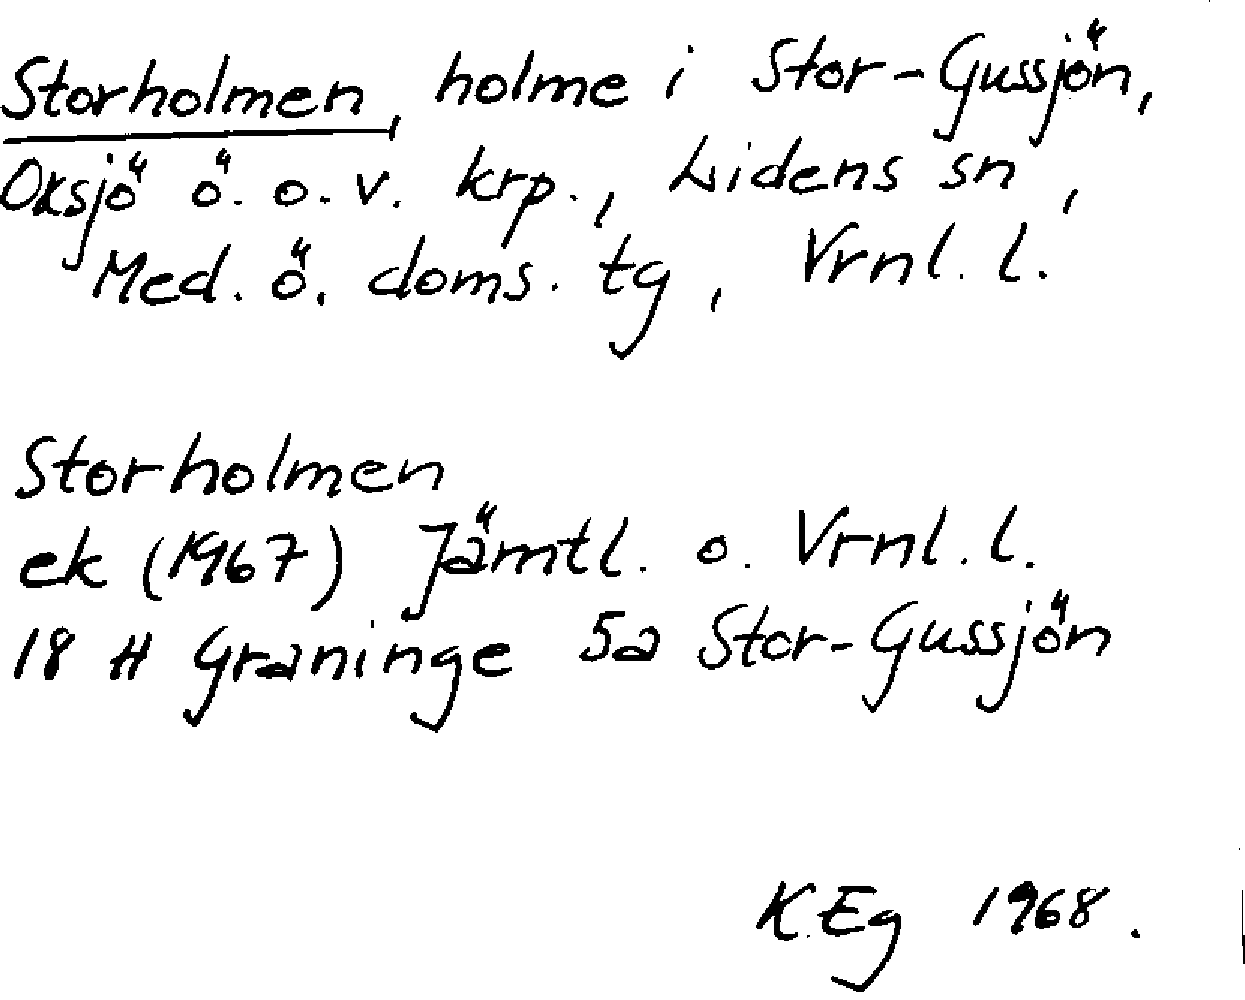 Storholmen, holme i Stor-Gussjön,
Oksjö ö. o. v. krp., Lidens sn,
Med. ö. doms. tg, Vrnl. l.
Storholmen
ek (1967) Jämtl. o. Vrnl. l.
18 H Graninge 5a Stor-Gussjön
K.Eg 1968.